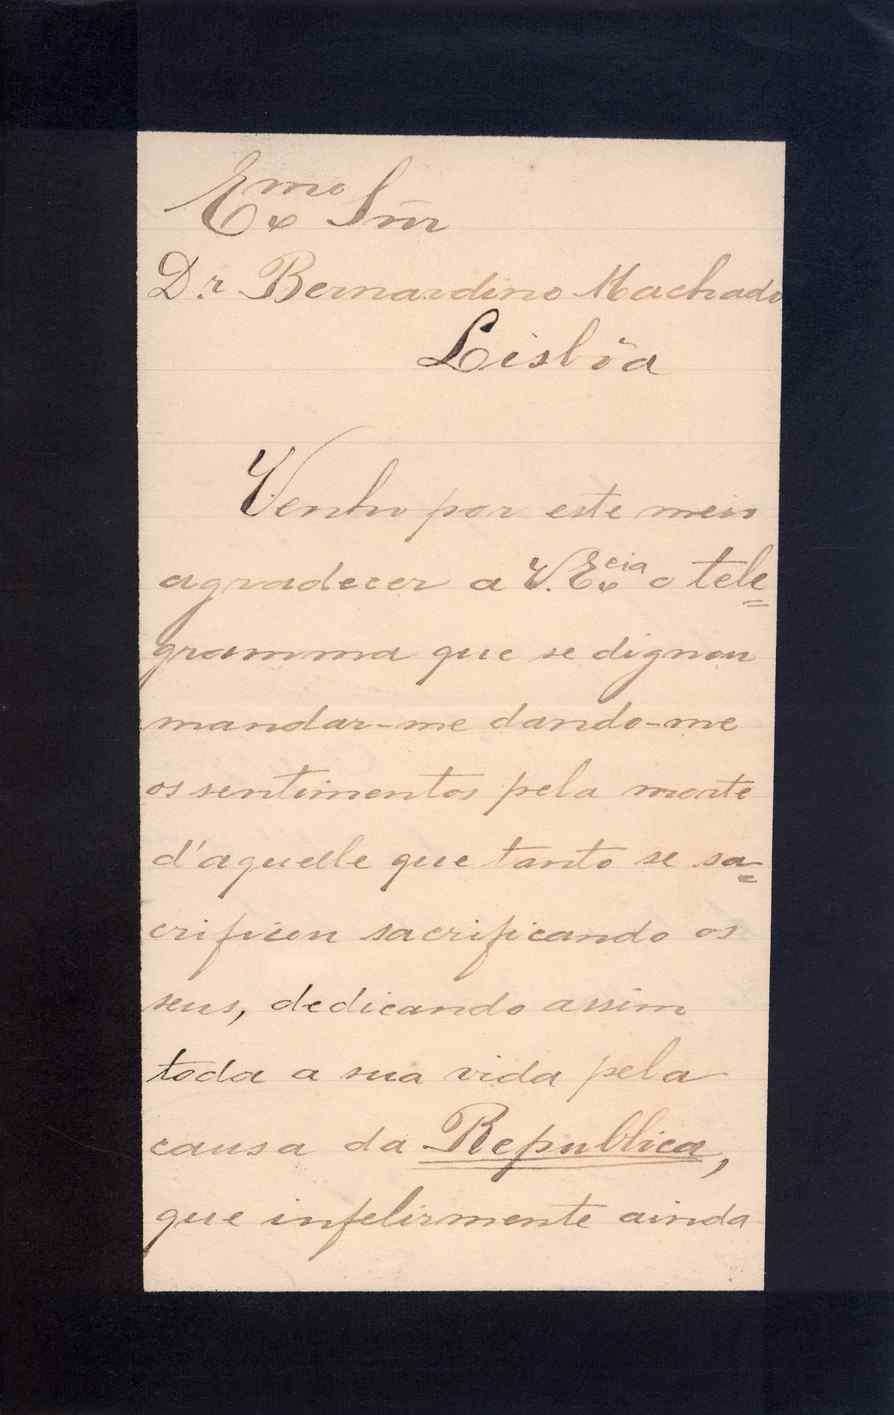 Exmo Snr
Dr. Bernardino Machado
Lisbôa
Venho por este meio
agradecer a V. Excia o tele=
gramma que se dignou
mandar-me dando-me
os sentimentos pela morte
d'aquelle que tanto se sa=
crificou sacrificando os
seus, dedicando assim
toda a sua vida pela
causa da Republica,
que infelizmente ainda